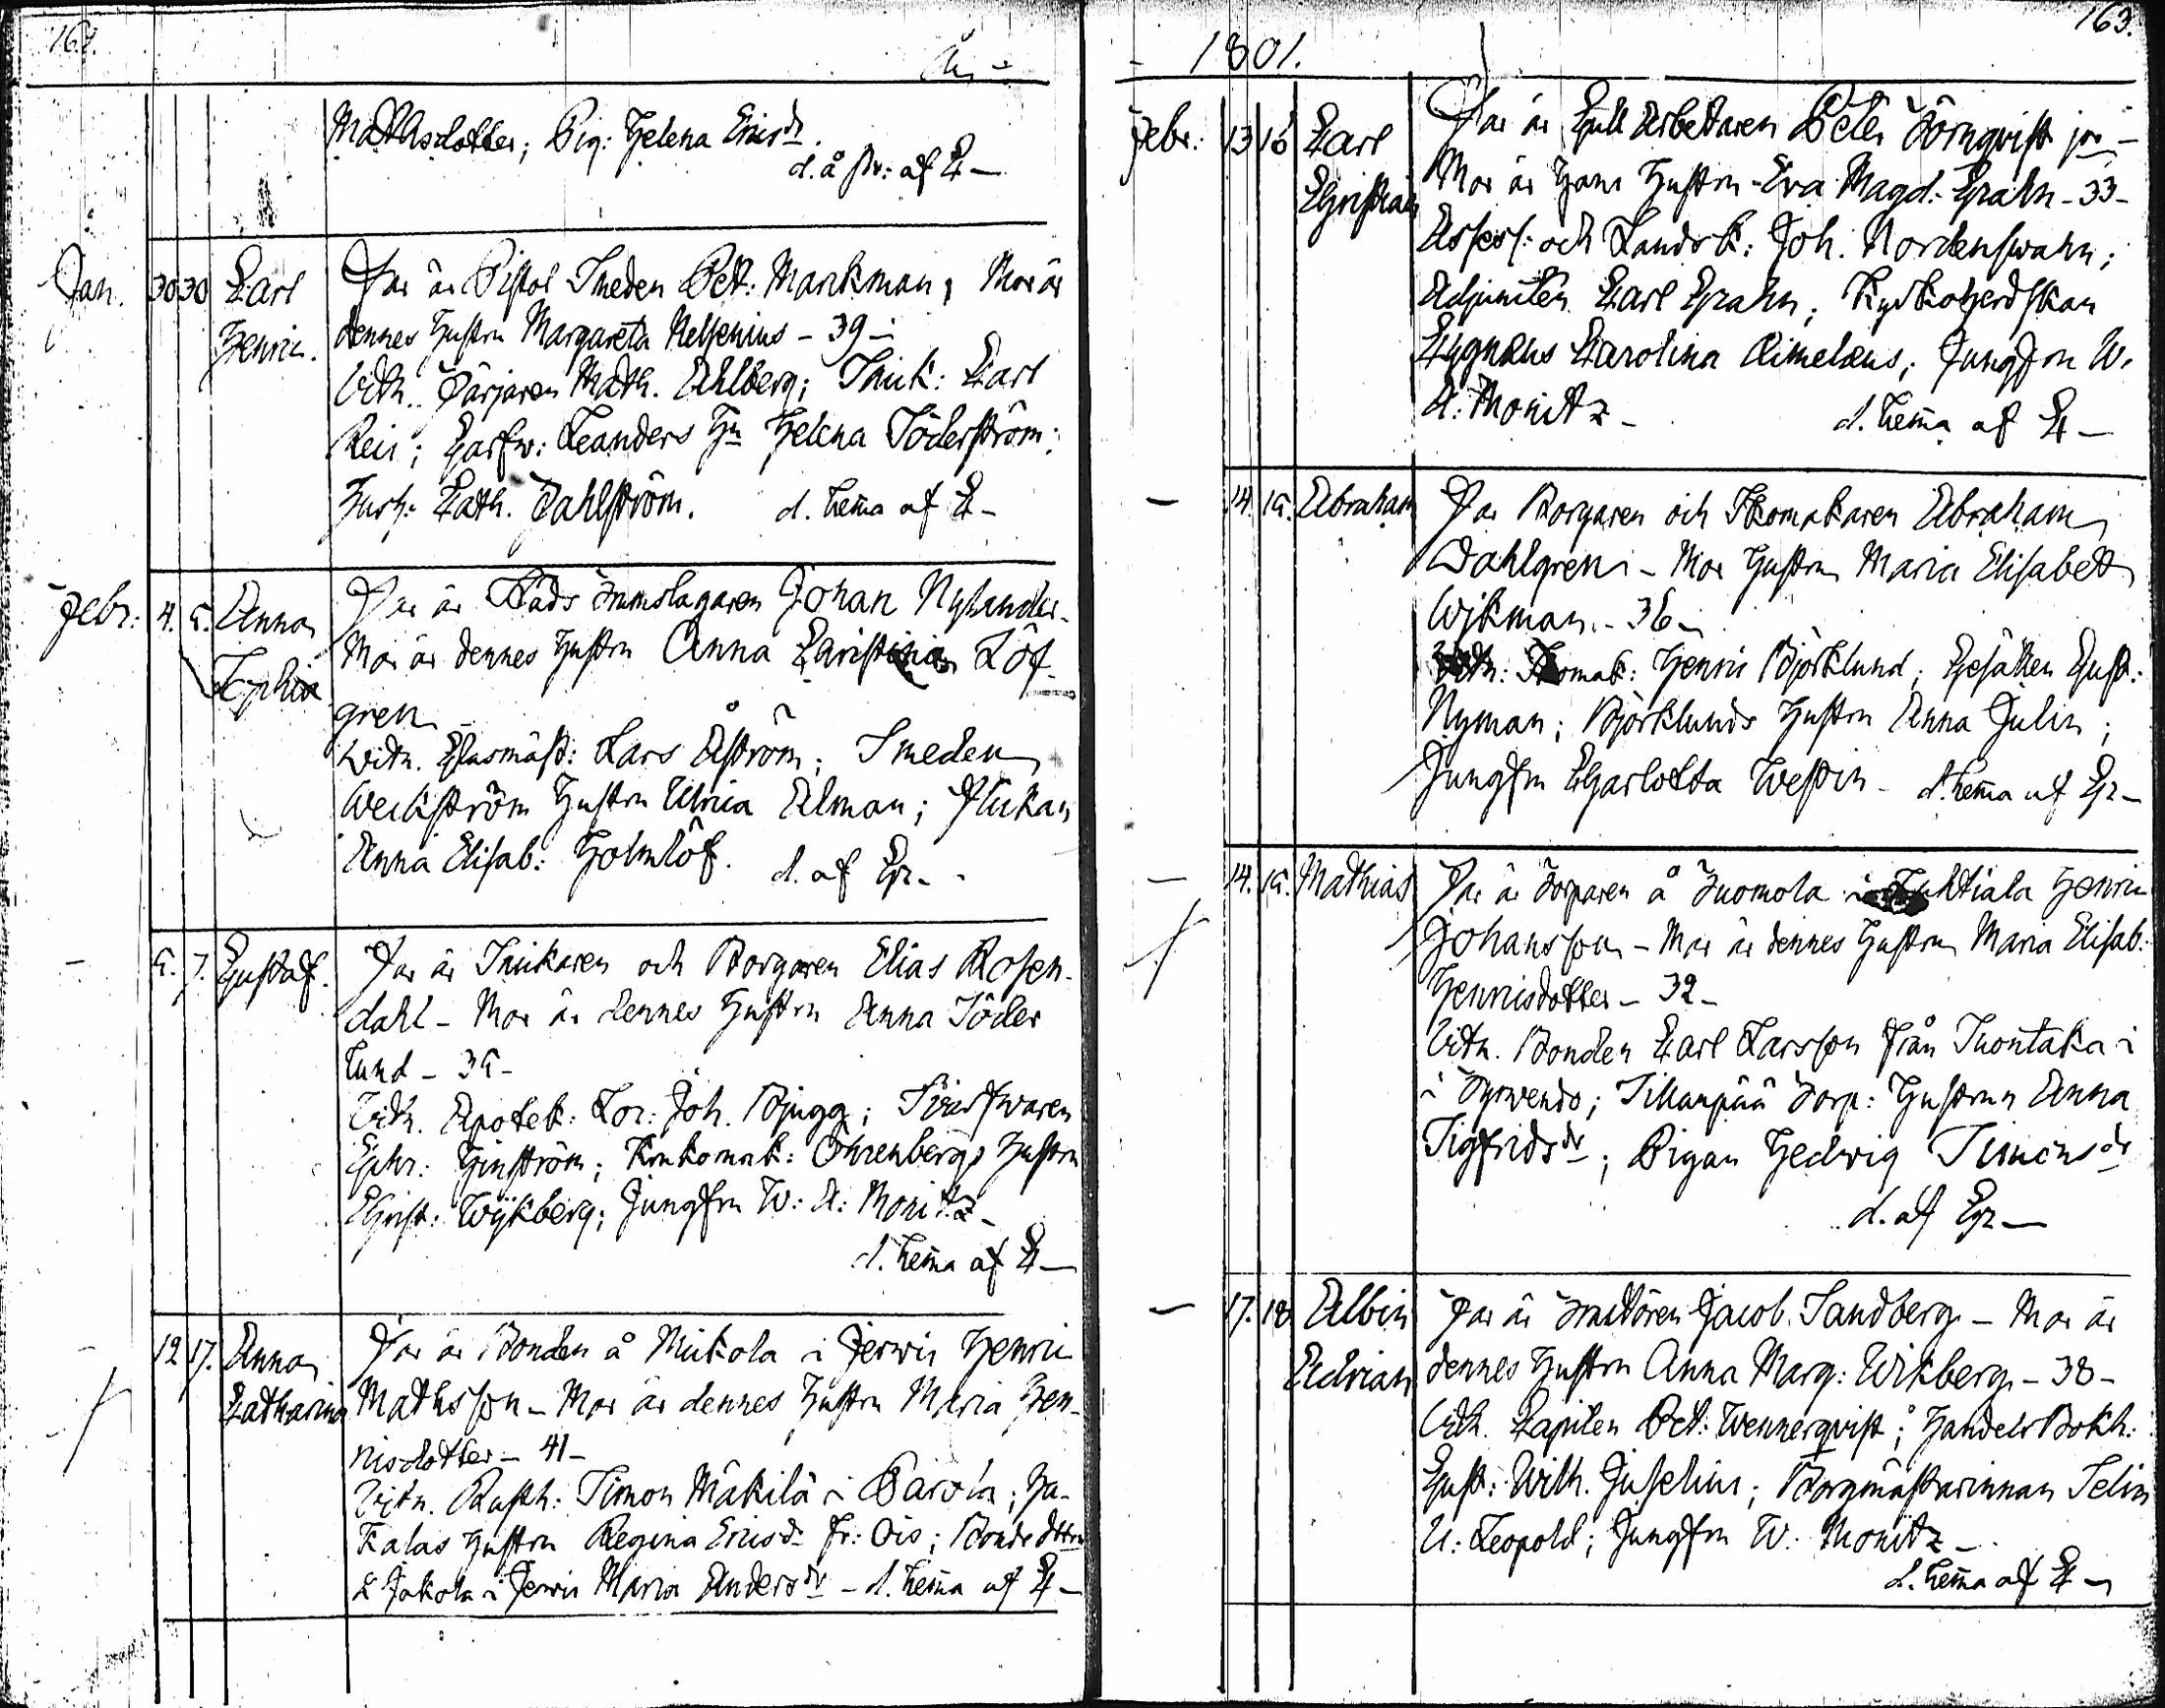 162.
År
Mathsdotter; Pig: Helena Ericsdr.
d. å Pr: af C—
Jan. 30 30 Carl
Henric.
Far är Pistol Smeden Pet: Markman, Mor är
dennes Hustru Margareta Melsenius – 39 –
Vitn. Färjaren Math. Ahlberg; Snick: Carl
Reis; Garfw: Leanders Hu Helena Söderström;
Hush: Cath. Dahlström. d. hem̄a af C –
Febr: 4. 5. Anna
Sophia
Far är Stads Trumslagaren Johan Nylander.
Mor är dennes Hustru Anna Christina Löf-
gren –
Vitn. Glasmäst: Lars Åström; Smeden
Weckström Hustru Ulrica Alman; Flickan
Anna Elisab: Holmlöf. d. af Gr. –
– 5. 7. Gustaf.
Far är Snickaren och Borgaren Elias Rosen-
dahl – Mor är dennes Hustru Anna Söder
lund – 35 –
Vitn. Apotek: Joh. Bjugg; Svarfwaren
Ephr: Hinström; Krukomak: Öhrenbergs Hustru
Christ: Wijkberg; Jungfru W: A: Monitz –
d. hem̄a af C –
– 12 17. Anna
Catharina
Far är Bonden å Mickola i Jerwis Henric
Mathsson – Mor är dennes Hustru Maria Hen-
ricsdotter – 41 –
Vitn. Rusth: Simon Mäkilä i Parola; Ja-
kalas Hustru Regina Ericsdr fr: Ois; Bonde dttrn
Jakola i Jerwis Maria Andersdr – d. hem̄a af C –
163.
– 1801.
Febr: 13 15 Carl
Christian
Far är Gull Arbetaren Peter Törnqvist jr –
Mor är Hans Hustru Eva Magd: Grahn – 33 –
Assess: och Landsk: Joh. Nordenswahn;
Adjuncten Carl Grahn; Kyrkoherdskan
Cygnæus Carolina Aimelæus; Jungfru W.
A: Monitz – d. hem̄a af C –
– 14. 15. Abraham
Far Borgaren och Skomakaren Abraham
Dahlgren – Mor Hustru Maria Elisabeth
Wikman – 36 –
Vitn: Skomak: Henric Björklund; Gesällen Gust:
Nyman; Björklunds Hustru Anna Julin;
Jungfru Charlotta Westin – d. hem̄a af Gr –
– 14. 15. Mathias
Far är Torparen å Tuomola i Luhtiala Henric
Johansson – Mor är dennes Hustru Maria Elisab:
Henricsdotter – 32 –
Vitn. Bonden Carl Larsson från Suontaka i
i Tyrwendo; Sillanpää Torp: Hustrun Anna
Sigfridsdr; Pigan Hedwig Simonsdr
d. af Gr –
– 17. 18 Albin
Adrian
Far är Traktören Jacob Sandberg – Mor är
dennes Hustru Anna Marg: Wikberg – 38 –
Vitn. Capiten Pet: Wennerqvist; Handels Bokh:
Gust: Wilh. Juselius; Borgmästarinnan Selin
U: Leopold; Jungfru W. Monitz –
d. hem̄a af C –